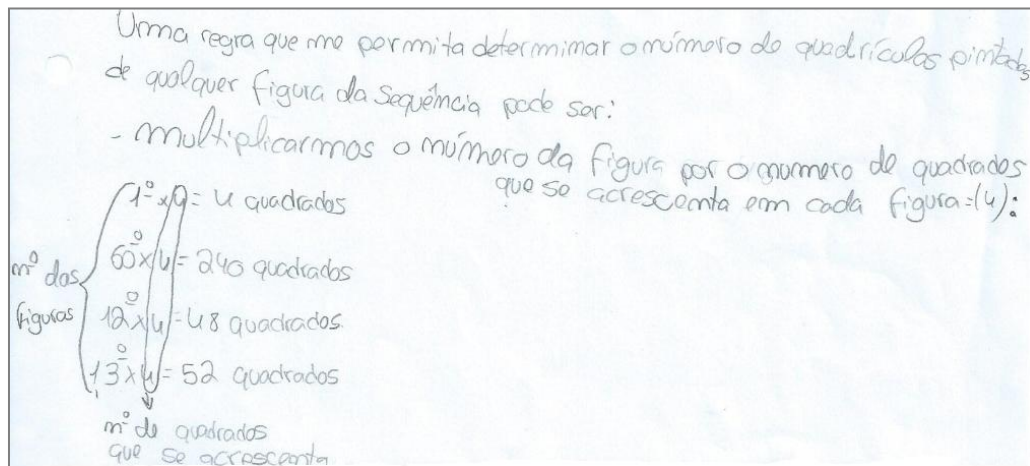 Uma regra que me permita determinar o número de quadrículas pintadas
de qualquer figura da sequência pode ser:
- multiplicarmos o número da figura por o número de quadrados
que se acrescenta em cada figura=(4):
1º x 4 = 4 quadrados
60º x 4 = 240 quadrados
nº das
figuras
12º x 4 = 48 quadrados
13º x 4 = 52 quadrados
nº de quadrados
que se acrescenta